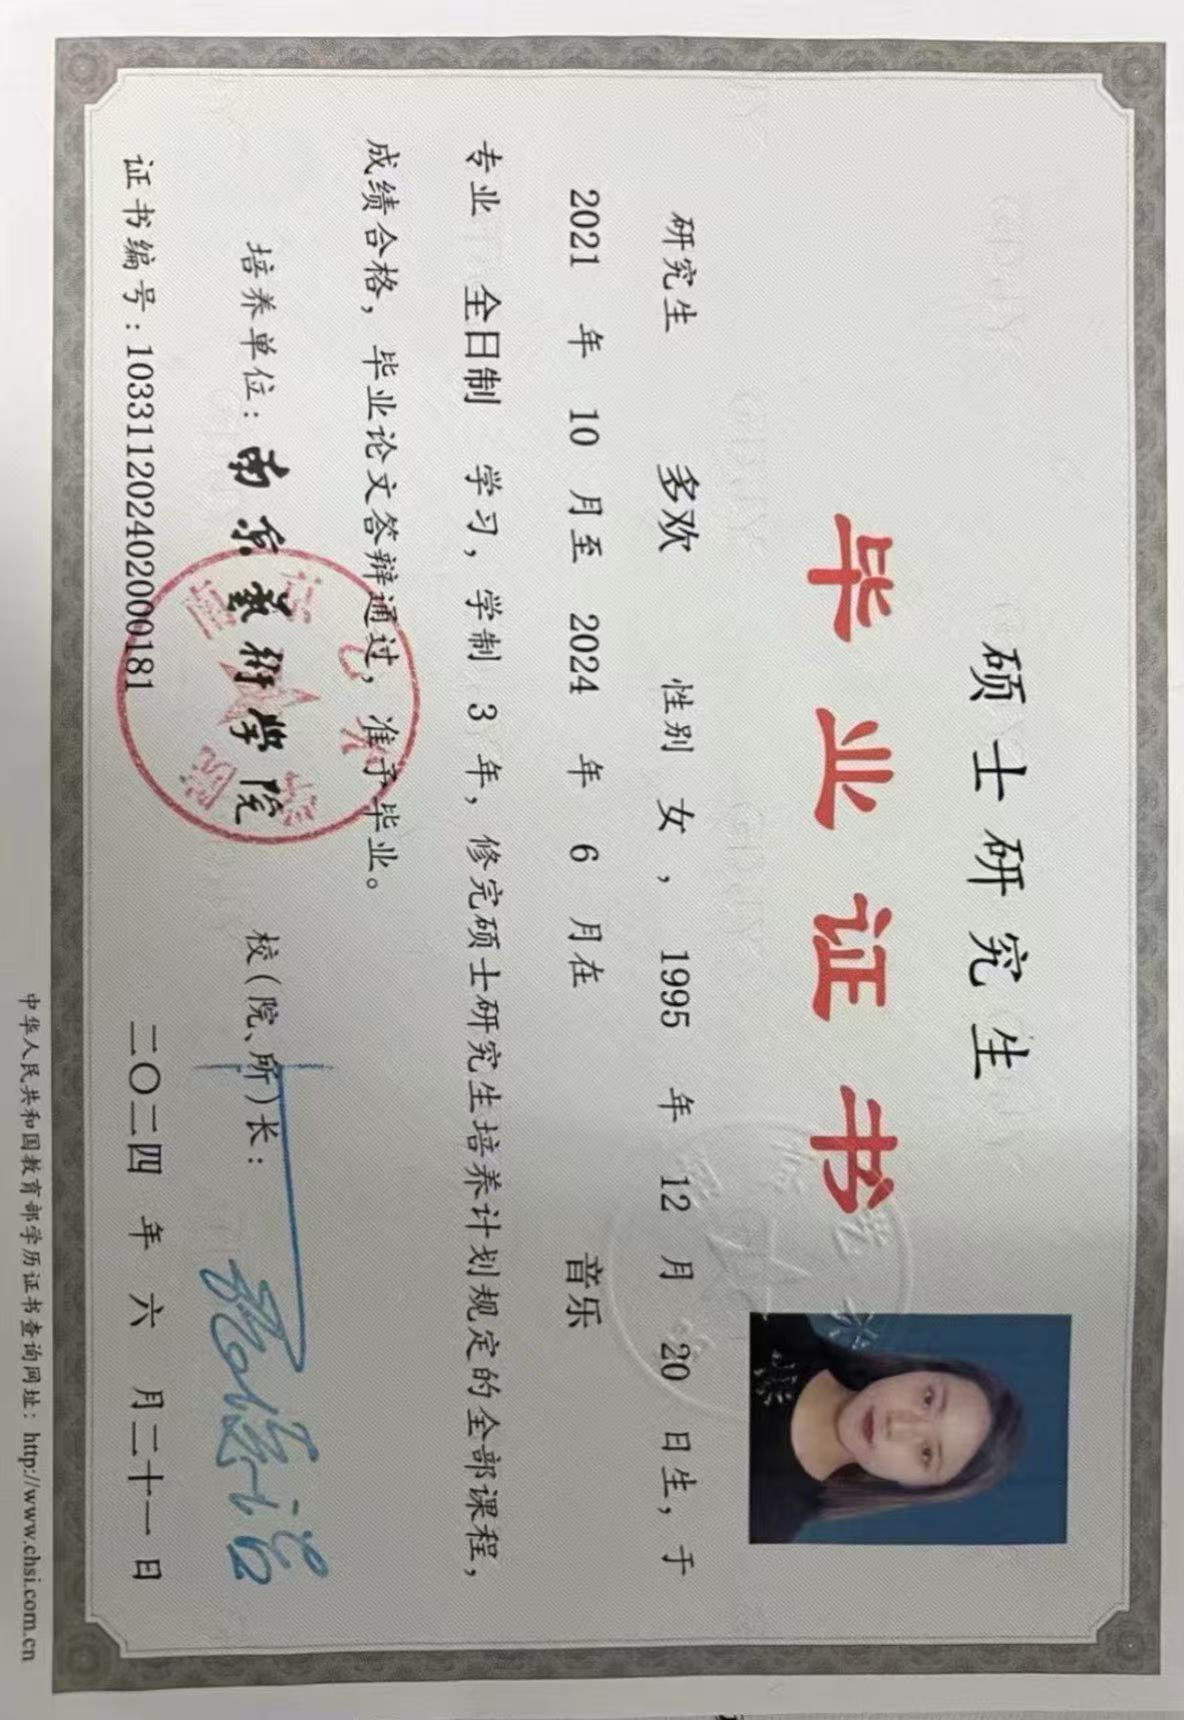 硕士研究生
毕业证书
研究生 多欢 性别 女，1995 年 12 月 20 日生，于
2021 年 10 月至 2024 年 6 月在 音乐
专业 全日制 学习，学制 3 年，修完硕士研究生培养计划规定的全部课程，
成绩合格，毕业论文答辩通过，准予毕业。
培养单位：南京艺术学院 校（院、所）长：
证书编号：103311202402000181 二〇二四 年 六 月二十一 日
中华人民共和国教育部学历证书查询网址：http://www.chsi.com.cn